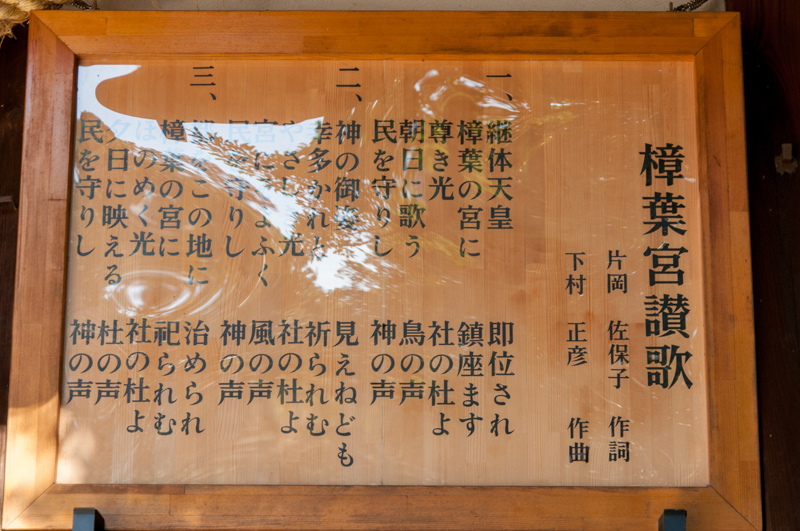 樟葉宮讃歌
片岡 佐保子 作詞
下村 正彦 作曲
一、
継体天皇 即位され
樟葉の宮に 鎮座ます
尊き光 社の杜よ
朝日に歌う 鳥の声
民を守りし 神の声
二、
神の御姿 見えねども
幸多かれと 祈られむ
やさしき光 社の杜よ
宮に ふく 風の声
民を守りし 神の声
三、
この地に 治められ
樟葉の宮に 祀られむ
ほのめく光 社の杜よ
夕日に映える 杜の声
民を守りし 神の声